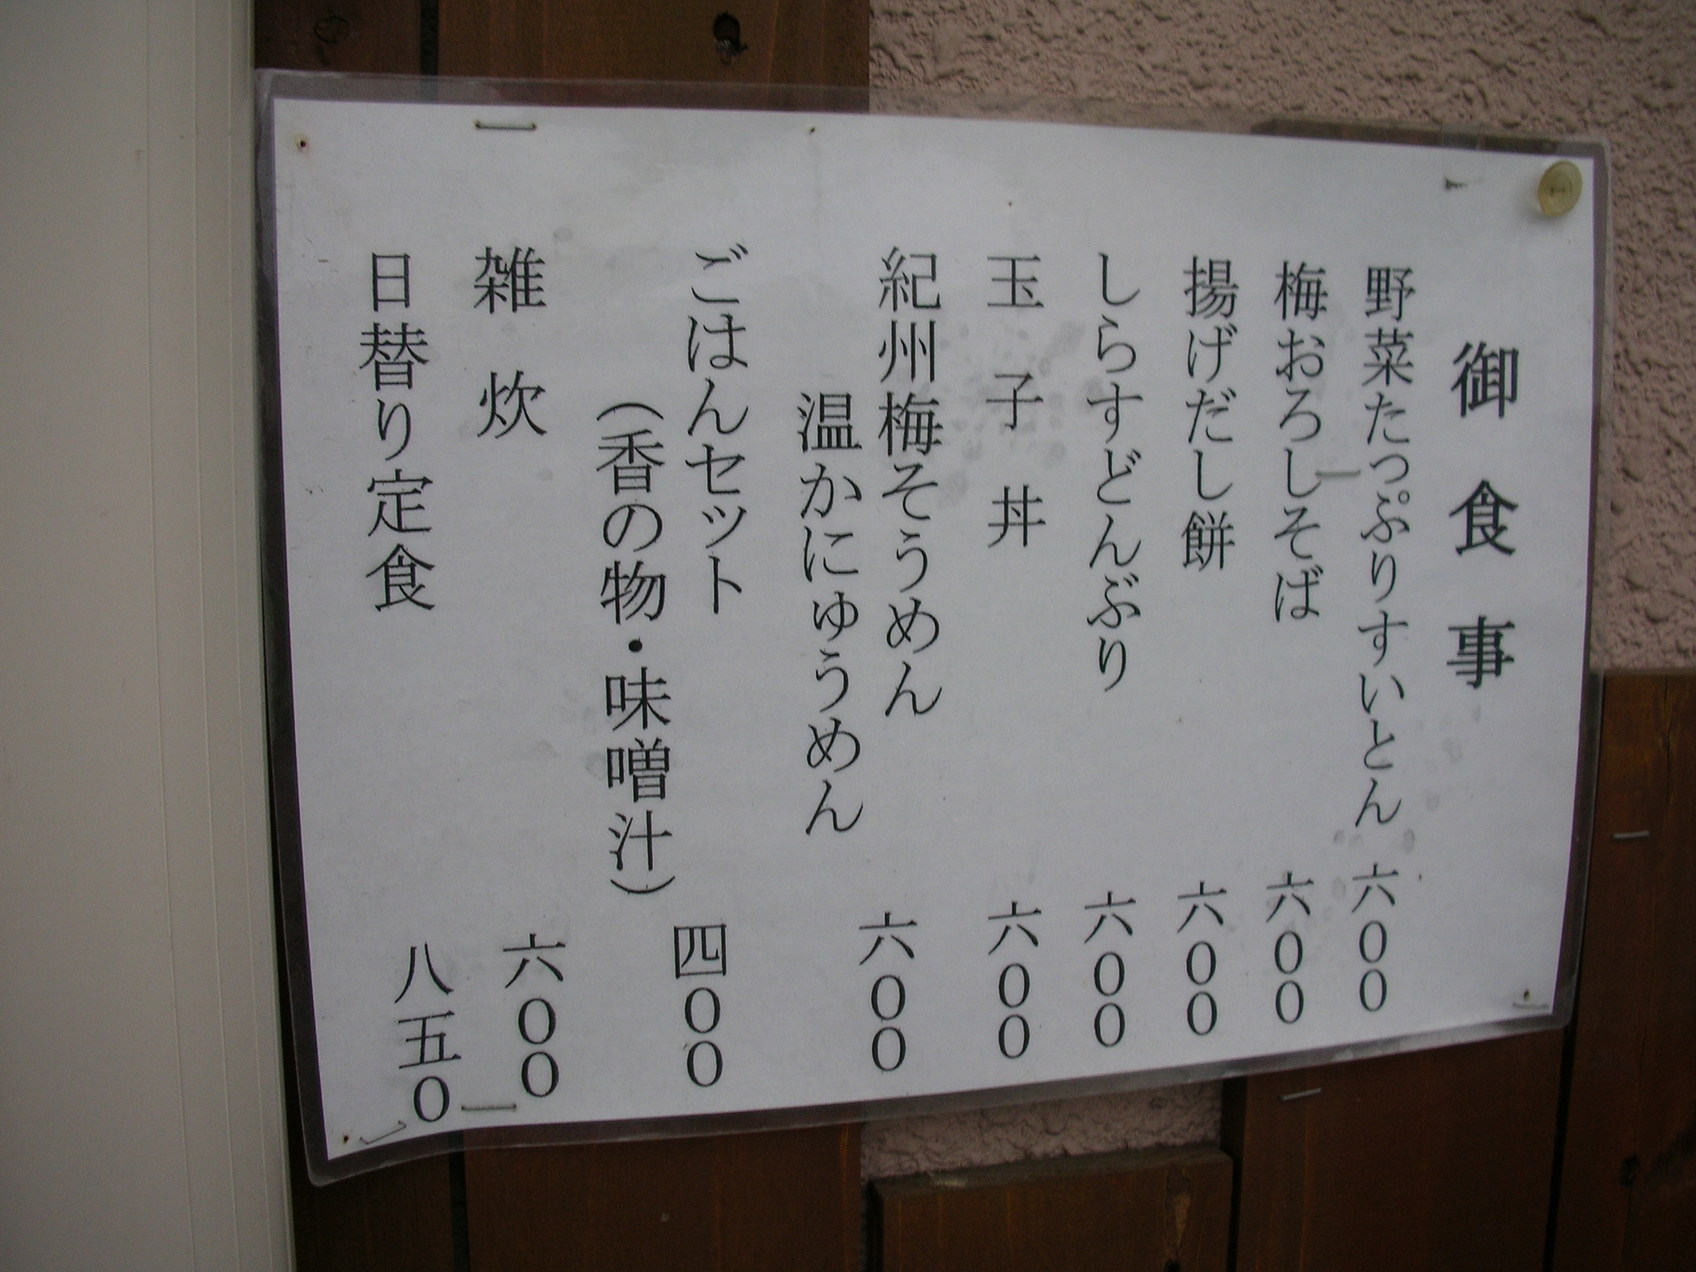 御食事
野菜たっぷりすいとん 六00
梅おろしそば 六00
揚げだし餅 六00
しらすどんぶり 六00
玉子丼 六00
紀州梅そうめん
温かにゅうめん 六00
ごはんセット 四00
（香の物・味噌汁）
雑炊 六00
日替り定食 八五0